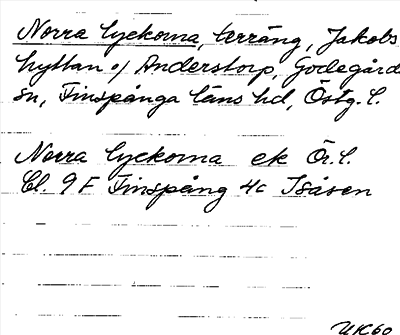 Norra Lyckorna, terräng, Jakobs
hyttan o/ Anderstorp, Godegård
sn, Finspånga läns hd, Östg. l.
Norra Lyckorna ek Ör. l.
Bl. 9 F Finspång 4c Isåsen
UK60